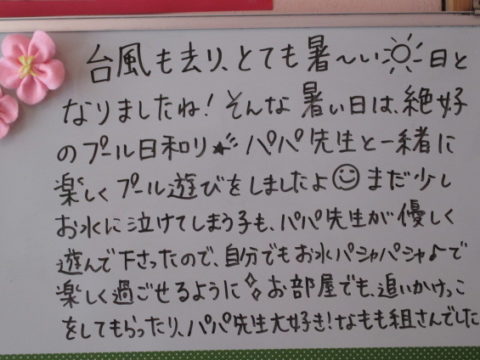 台風も去り、とても暑〜い☀日と
なりましたね！そんな暑い日は、絶好
のプール日和り★パパ先生と一緒に
楽しくプール遊びをしましたよ☺まだ少し
お水に泣けてしまう子も、パパ先生が優しく
遊んで下さったので、自分でもお水パシャパシャ♪で
楽しく過ごせるように✧お部屋でも、追いかけっこ
をしてもらったり、パパ先生大好き！なもも組さんでした